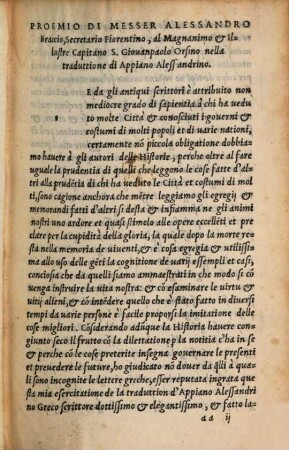 PROEMIO DI MESSER ALESSANDRO
Braccio, Secretario Fiorentino, al Magnanimo & Il=
lustre Capitano S. Giouanpaolo Orsino nella
traduttione di Appiano Alessandrino.
E da gli antiqui scrittori è attribuito non
mediocre grado di sapientia à chi ha vedu
to molte Città & conosciuti i gouerni &
costumi di molti popoli et di varie nationi,
certamente nõ piccola obligatione dobbia
mo hauere à gli autori delle Historie, perche oltre al fare
uguale la prudentia di quelli che leggono le cose fatte d'al=
tri alla prudẽtia di chi ha veduto le Città et costumi di mol
ti, sono cagione anchora che mẽtre leggiamo gli egregij &
memorandi fatti d'altri si desta & infiamma ne gli animi
nostri uno ardore et quasi stimolo alle opere eccellẽti et pre
clare per la cupidità della gloria, la quale dopo la morte re=
sta nella memoria de viuenti, & è cosa egregia & utilissi=
ma allo uso delle gẽti la cognitione de varij essempi et casi,
conciosia che da quelli siamo ammaestrati in che modo si cõ
uenga instruire la vita nostra: & cõ esaminare le virtu &
vitij alieni, & cõ intẽdere quello che è stato fatto in diuersi
tempi da varie persone è facile proporsi la imitatione delle
cose migliori. Cõsiderando adũque la Historia hauere con
giunto seco il frutto cõ la dilettatione p la notitia c'ha in se
& perche cõ le cose preterite insegna gouernare le presenti
et preuedere le future, ho giudicato nõ douer da q̃lli à qua=
li sono incognite le lettere greche, esser reputata ingrata que
sta mia esercitatione de la traduttion d'Appiano Alessandri
no Greco scrittore dottissimo & elegantissimo, & fatto la=
aa ij